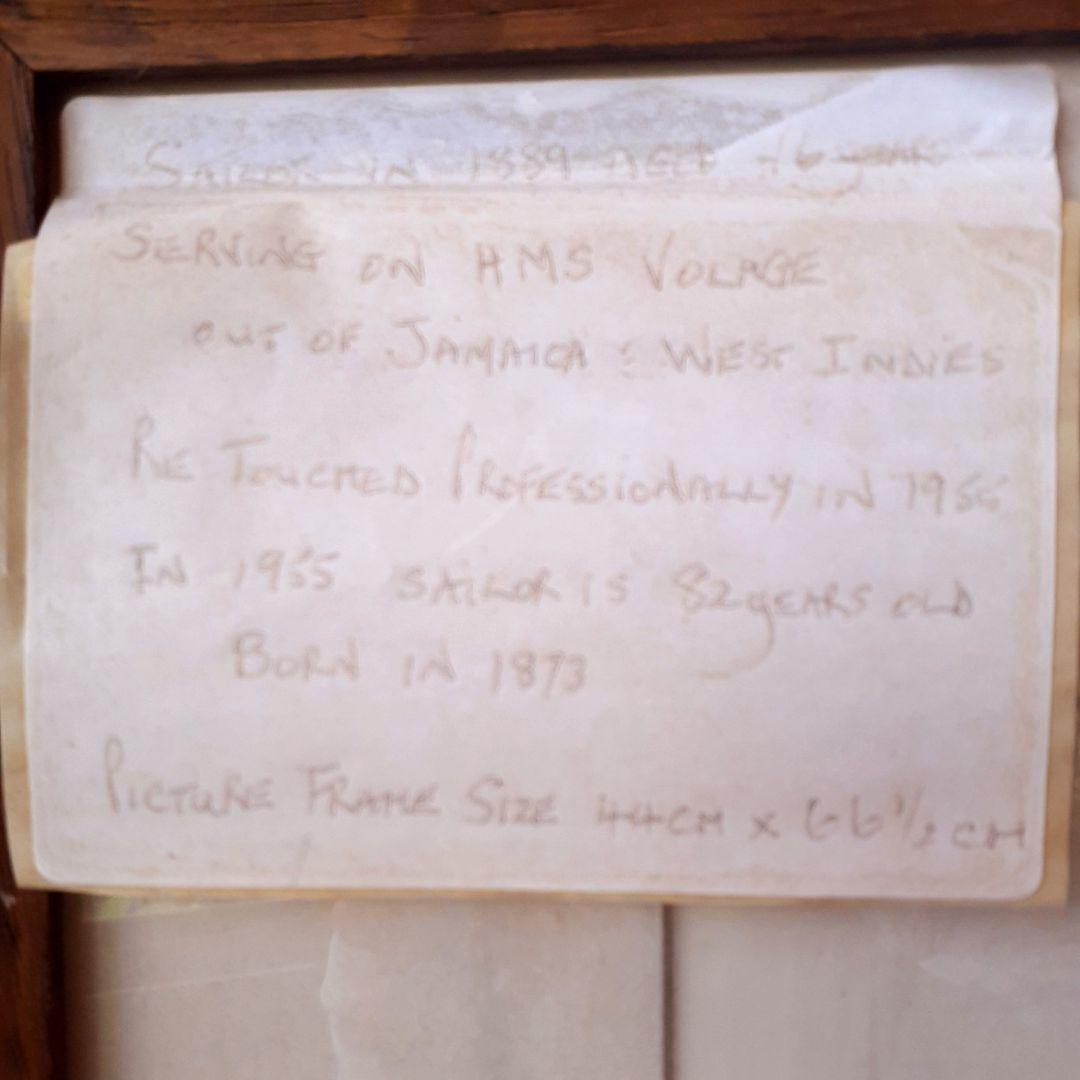 SAILOR IN 1889 AGED 16 years
SERVING ON HMS VOLAGE
OUT OF JAMAICA : WEST INDIES
RE TOUCHED PROFESSIONALLY IN 1955
IN 1955 SAILOR IS 82 yEARS OLD
BORN IN 1873
PICTURE FRAME SIZE 44CM x 66 1/2 CM